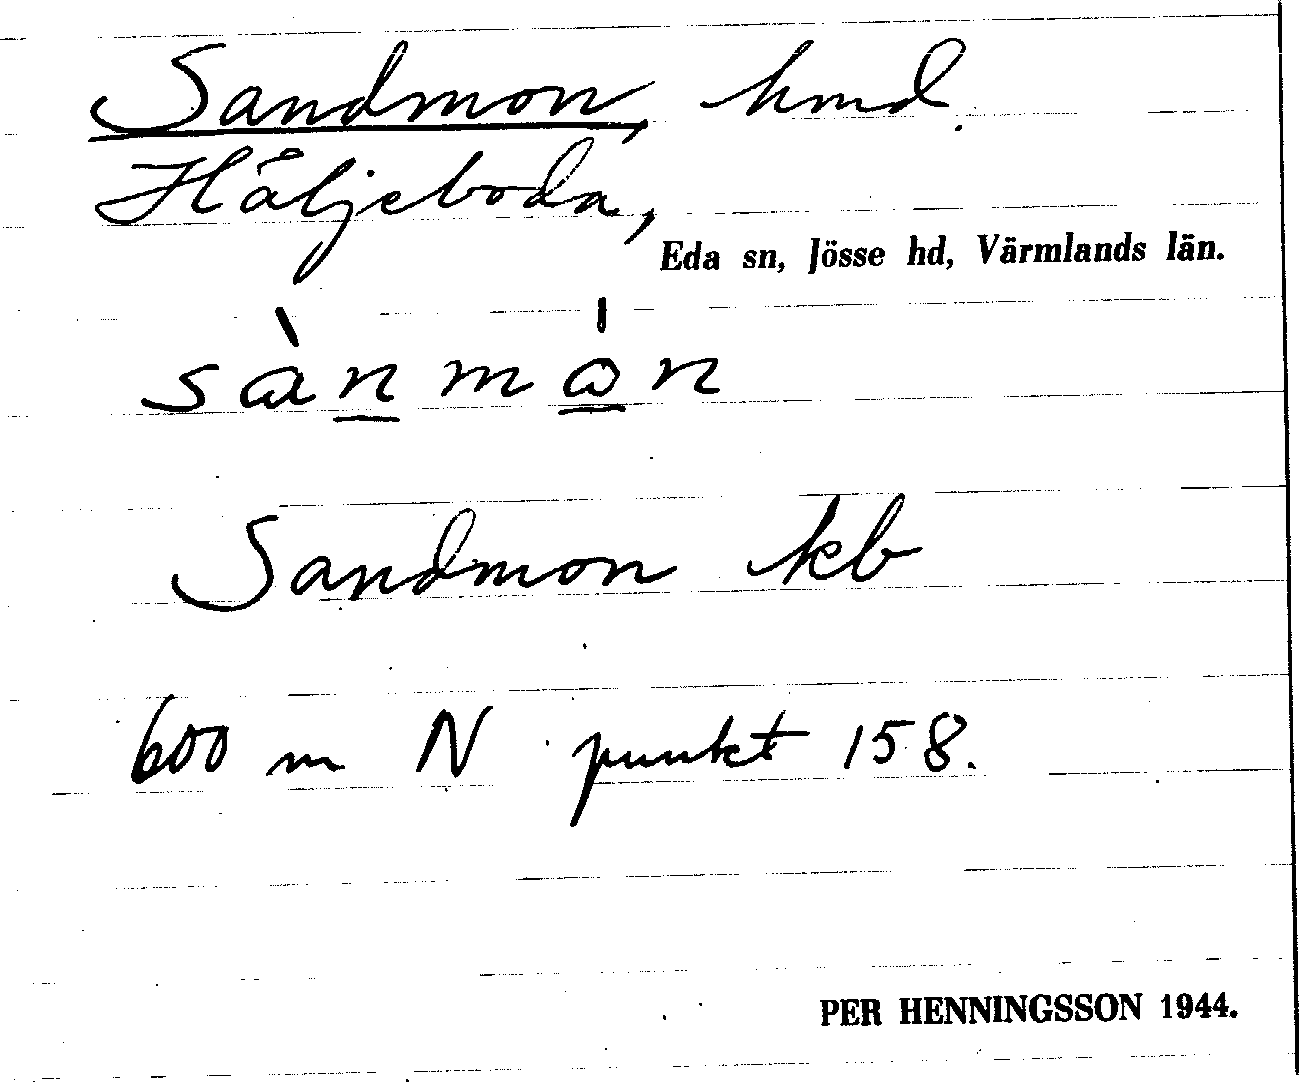 Sandmon, hmd.
Håljeboda,
Eda sn, Jösse hd, Värmlands län.
sànmòn
Sandmon kb
600 m N punkt 158.
PER HENNINGSSON 1944.